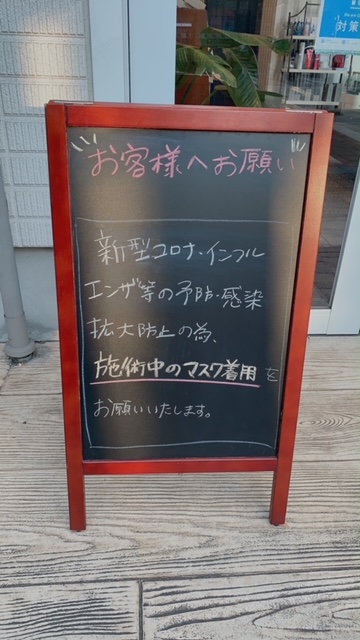 対策
お客様へお願い
新型コロナ・インフル
エンザ等の予防・感染
拡大防止の為、
施術中のマスク着用を
お願いいたします。